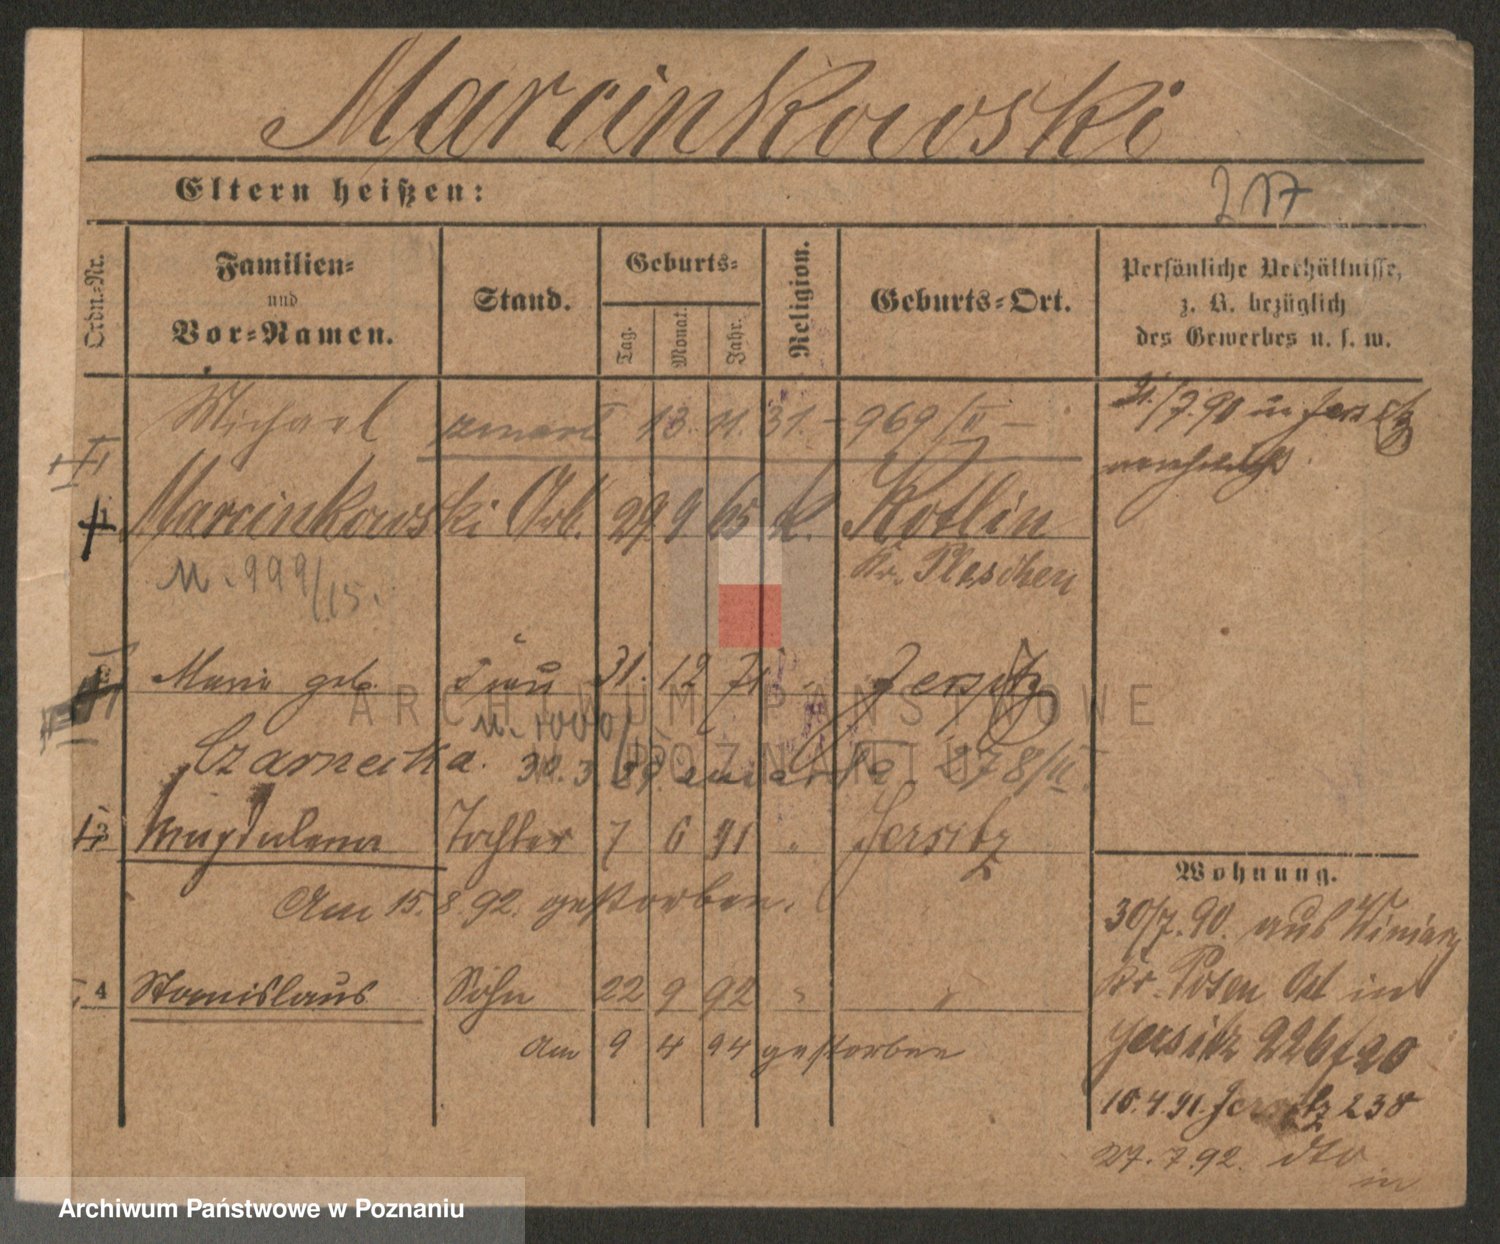 Marcinkowski
Eltern heißen:
217
Ordn.-Nr.
Familien-
und
Vor-Namen.
Stand.
Geburts-
Tag.
Monat.
Jahr.
Religion.
Geburts-Ort.
Persönliche Verhältnisse,
z. B. bezüglich
des Gewerbes u. s. w.
Michael zmarł 13. 11. 31. – 969/II –
21./7.90 in Jersitz
1 Marcinkowski Arb. 29. 9 65 k. Kotlin
Kr. Pleschen
N. 999/15.
Marie geb. Frau 31. 12 71 " Jersitz
N. 1000/
Czarnecka. 30. 3. 278/II.
3 Magdalena Tochter 7 6 91 " Jersitz
Am 15. 8. 92. gestorben.
4 Stanislaus Sohn 22 9 92 " "
Am 9 4 94 gestorben
Wohnung.
30/7.90. aus Winiary
Kr. Posen Ost in
Jersitz 226/20
10.4.91. Jersitz 238
27.7.92. dto
in
ARCHIWUM PAŃSTWOWE
W POZNANIU
Archiwum Państwowe w Poznaniu